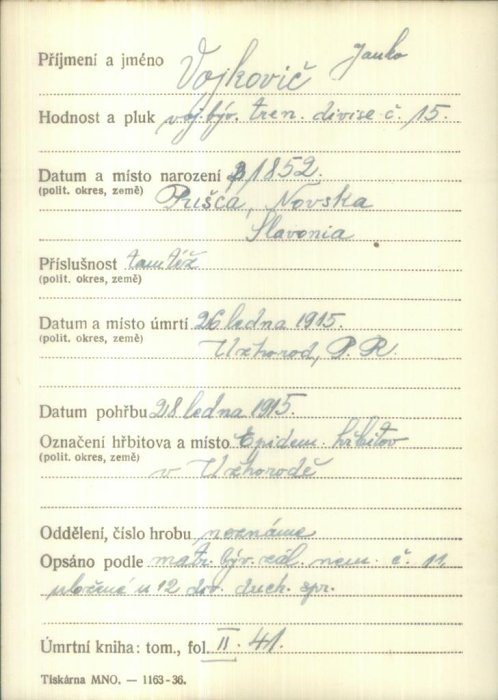 Příjmení a jméno Vojkovič Janko
Hodnost a pluk voj. býv. tren. divise č. 15.
Datum a místo narození 1852.
(polit. okres, země) Pušća, Novska
Slavonia
Příslušnost tamtéž
(polit. okres, země)
Datum a místo úmrtí 26 ledna 1915.
(polit. okres, země) Užhorod, P. R.
Datum pohřbu 28 ledna 1915.
Označení hřbitova a místo Epidem. hřbitov
(polit. okres, země) v Užhorodě
Oddělení, číslo hrobu neznámé
Opsáno podle matr. býv. zál. nem. č. 11
uložené u 12 div. duch. spr.
Úmrtní kniha: tom., fol. II. 41.
Tiskárna MNO. — 1163-36.